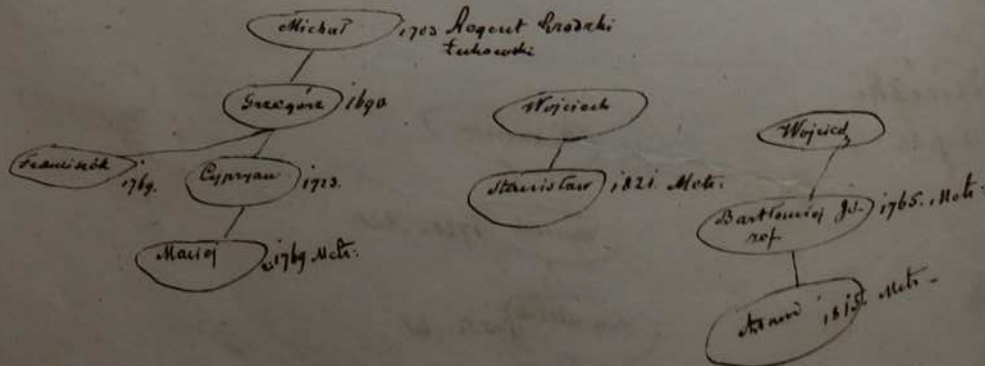 Michał 1703 Regent Grodzki
Łukowski
Grzegórz 1690
Franciszek 1769.
Cypryan 1723.
Maciej 1769 Metr.
Wojciech
Stanisław 1821. Metr.
Wojciech
Bartłomiej Jó- 1765. Metr.
zef
Adam 1815. Metr.